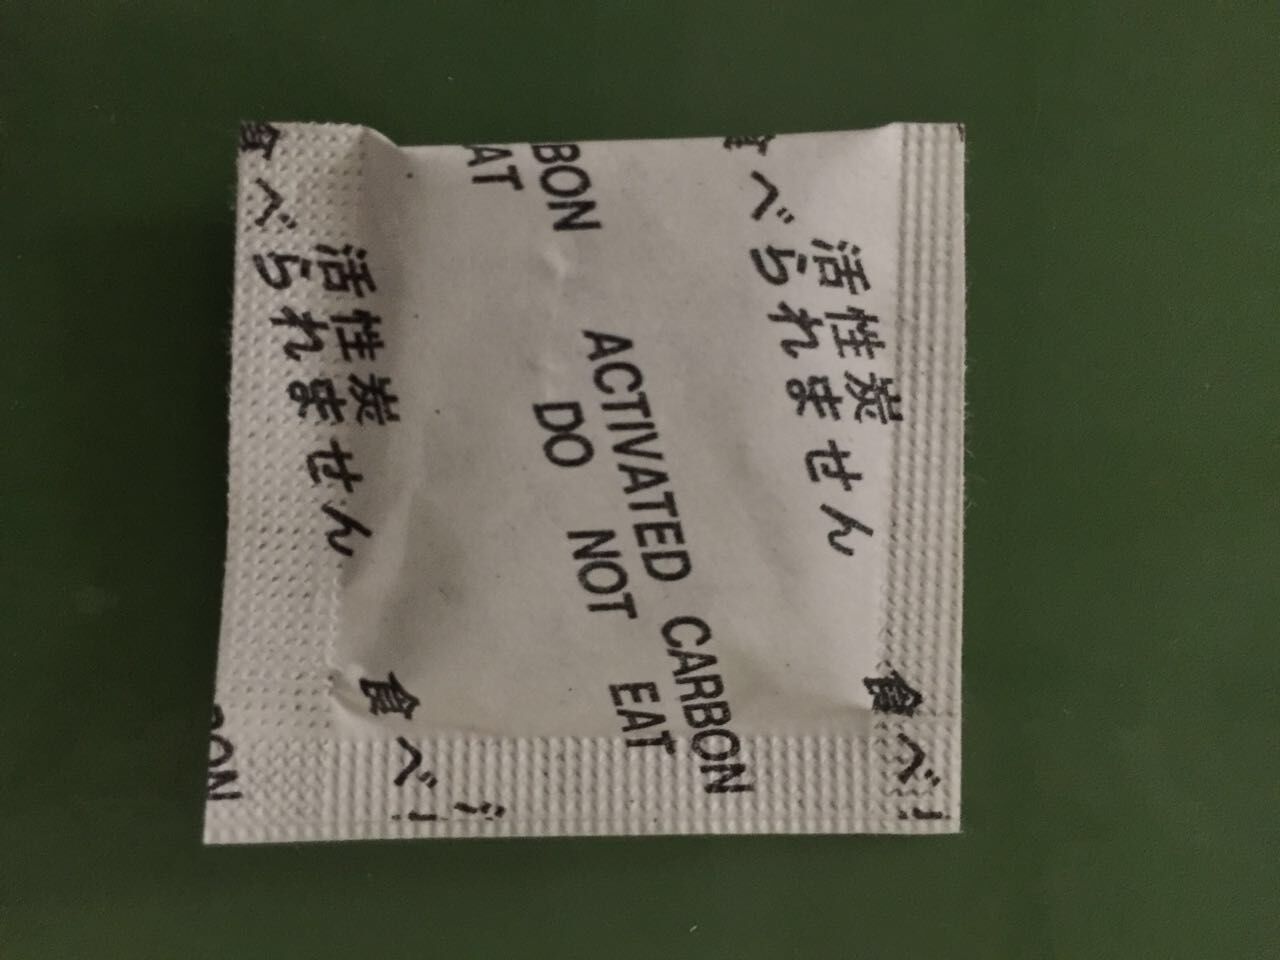 活性炭
食べられません
BON
AT
ACTIVATED CARBON
DO NOT EAT
活性炭
食べられません
食べ
食べ